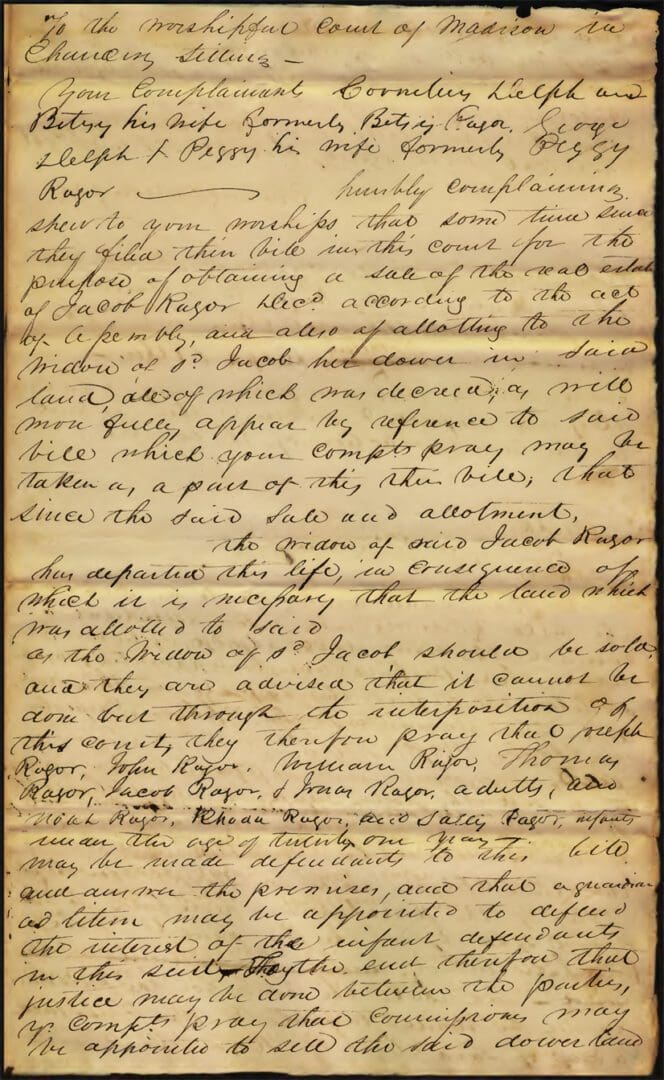 To the worshipful Court of Madison in
Chancery Sitting —
Your Complainants Cornelius Delph and
Betsy his wife formerly Betsy Ragor, George
Delph & Peggy his wife formerly Peggy
Ragor humbly complaining
shew to your worships that some time since
they filed their bill in this court for the
purpose of obtaining a sale of the real estate
of Jacob Ragor Decd. according to the act
of Assembly, and also of allotting to the
widow of sd. Jacob her dower in said
land, all of which was decreed, as will
more fully appear by reference to said
bill which your compts pray may be
taken as a part of this their bill, that
since the said sale and allotment,
the widow of said Jacob Ragor
has departed this life, in consequence of
which it is necessary that the land which
was allotted to said
as the Widow of sd. Jacob should be sold,
and they are advised that it cannot be
done but through the interposition of
this court, they therefore pray that Joseph
Ragor, John Ragor, William Ragor, Thomas
Ragor, Jacob Ragor, & Ragor, adults, and
Noah Ragor, Rhoda Ragor, and Sally Ragor, infants
under the age of twenty one years —
may be made defendants to this bill
and answer the premises, and that a guardian
ad litem may be appointed to defend
the interest of the infant defendants
in this suit, the end therefore that
justice may be done between the parties,
yr. compts. pray that commissioners may
be appointed to sell the said dower land